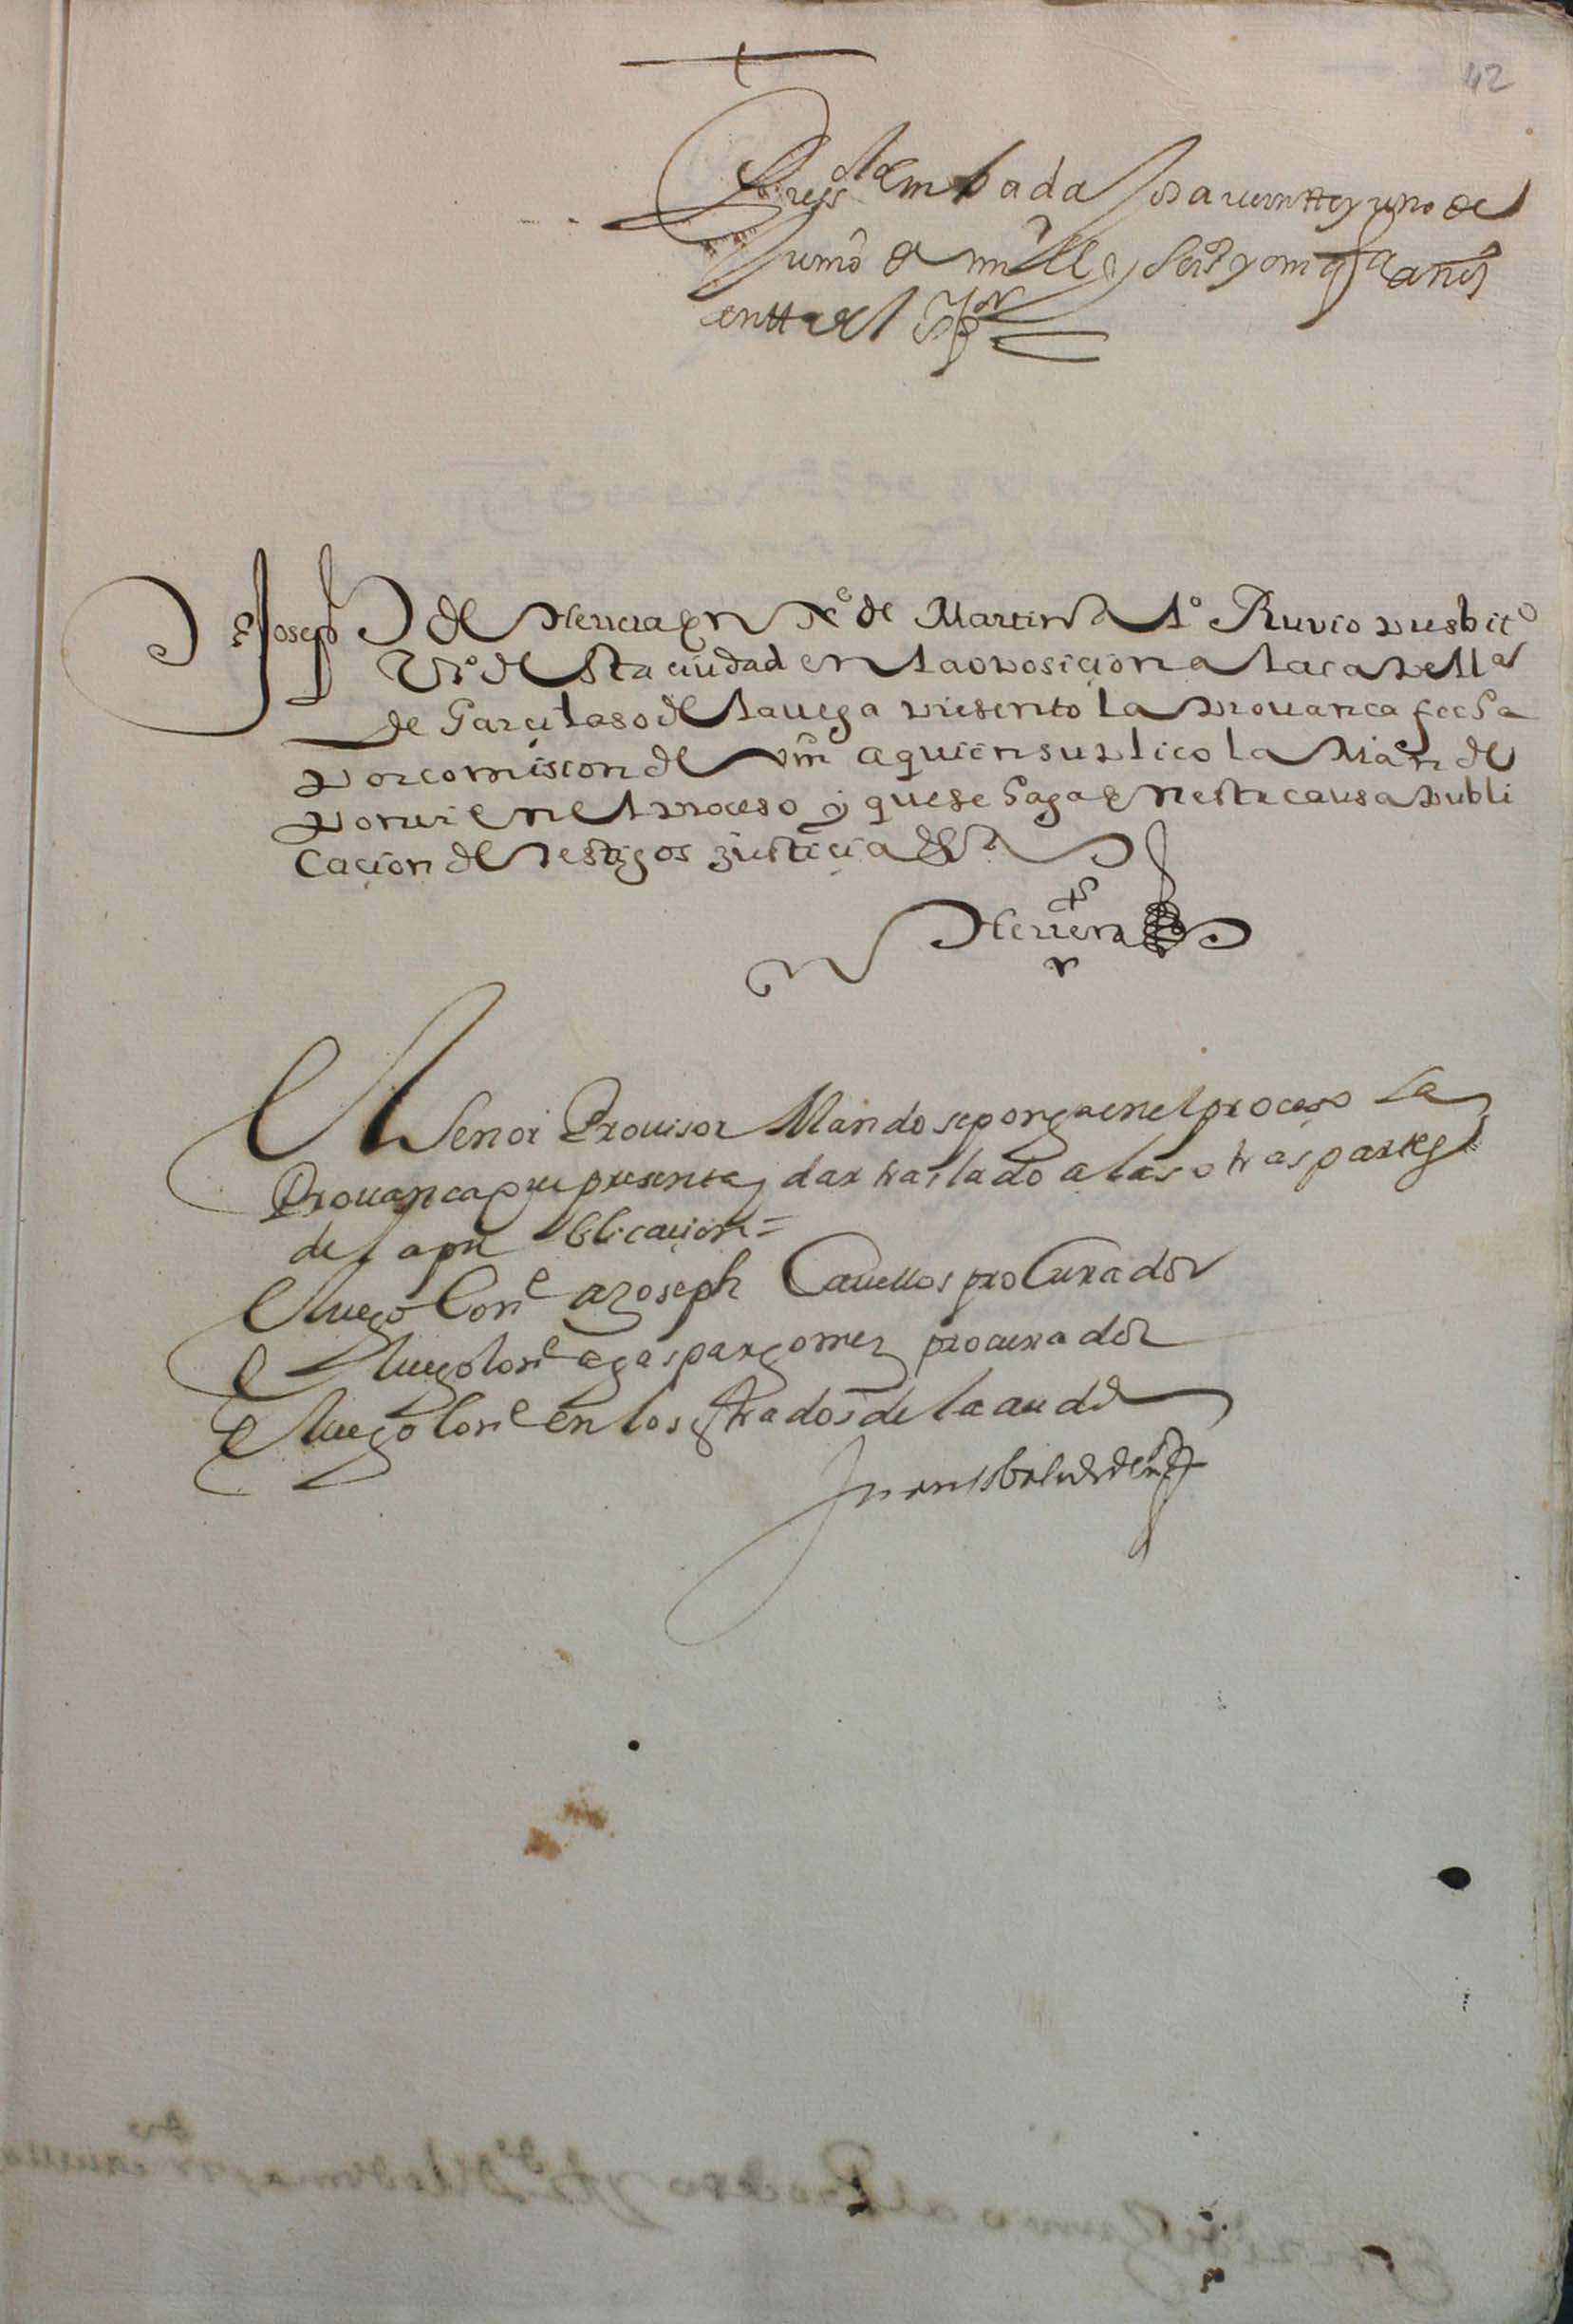 42
en Cordova a veintte y uno de
Junio de mill y seisº y cinqta años
antte el Sr Por
Joseph de Herrera en Ne de Martin Aº Ruvio presbitº
Vº de esta ciudad en la oposicion a la capella
de Garcilaso de la uega presento la prouanca fecha
por comision de Vm a quien suplico la Mande
poner en el proceso y que se haga en esta causa publi
cacion de testigos justicia ettª
Herrera
El Senor Prouisor Mando se ponga en el proceso La
Prouanca que presenta y dar traslado a las otras partes
de la pu blicacion =
E luego lo note a Joseph Cauellos procurador
E luego lo note a gaspar gomez procurador
E luego lo note en los estrados de la audª